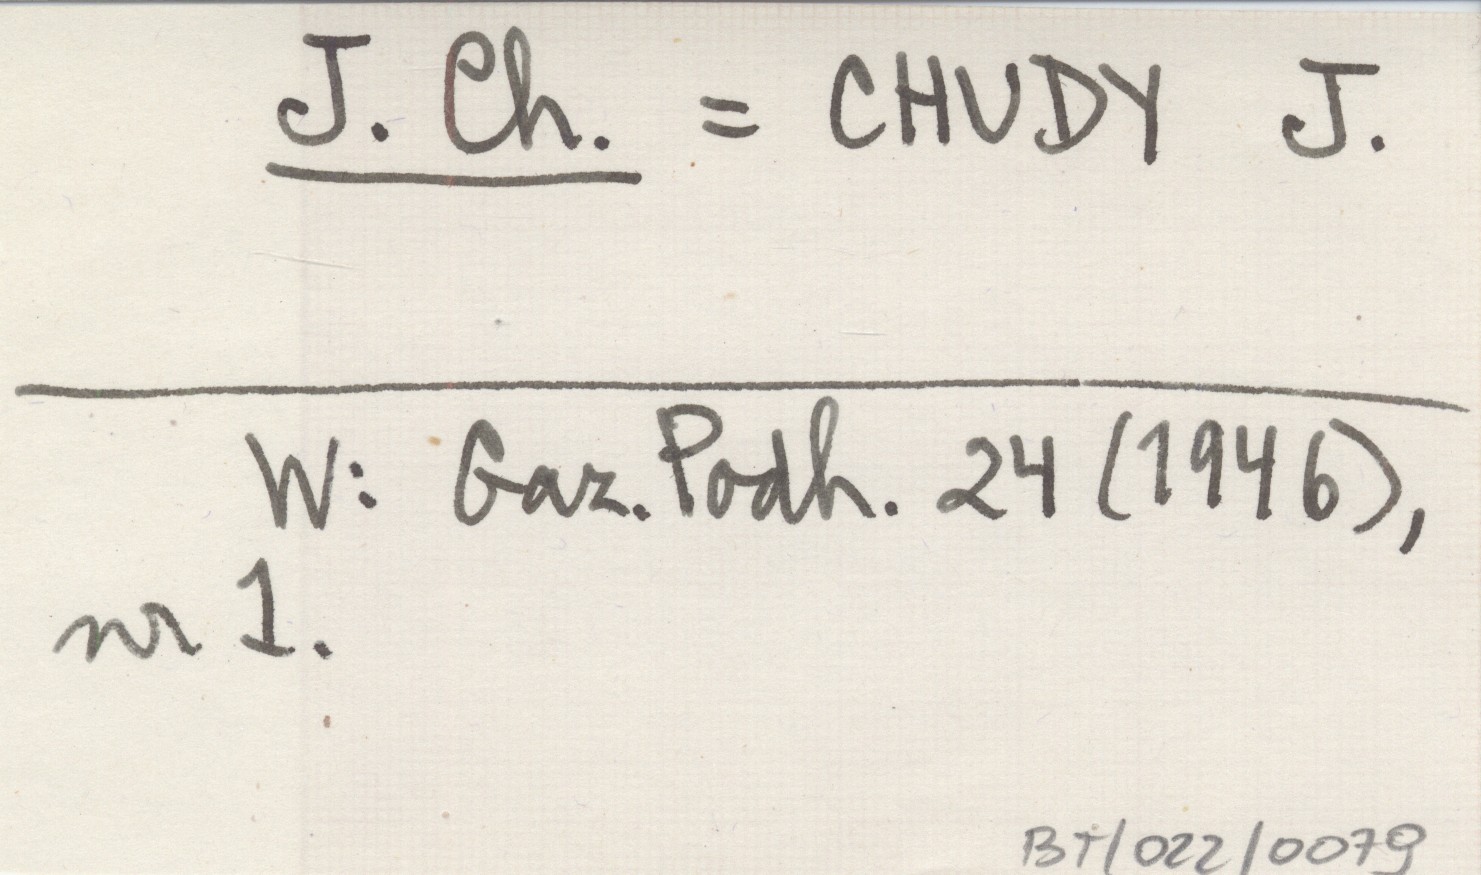 J. Ch. = CHUDY J.
W: Gaz. Podh. 24 (1946),
nr 1.
BT/022/0079